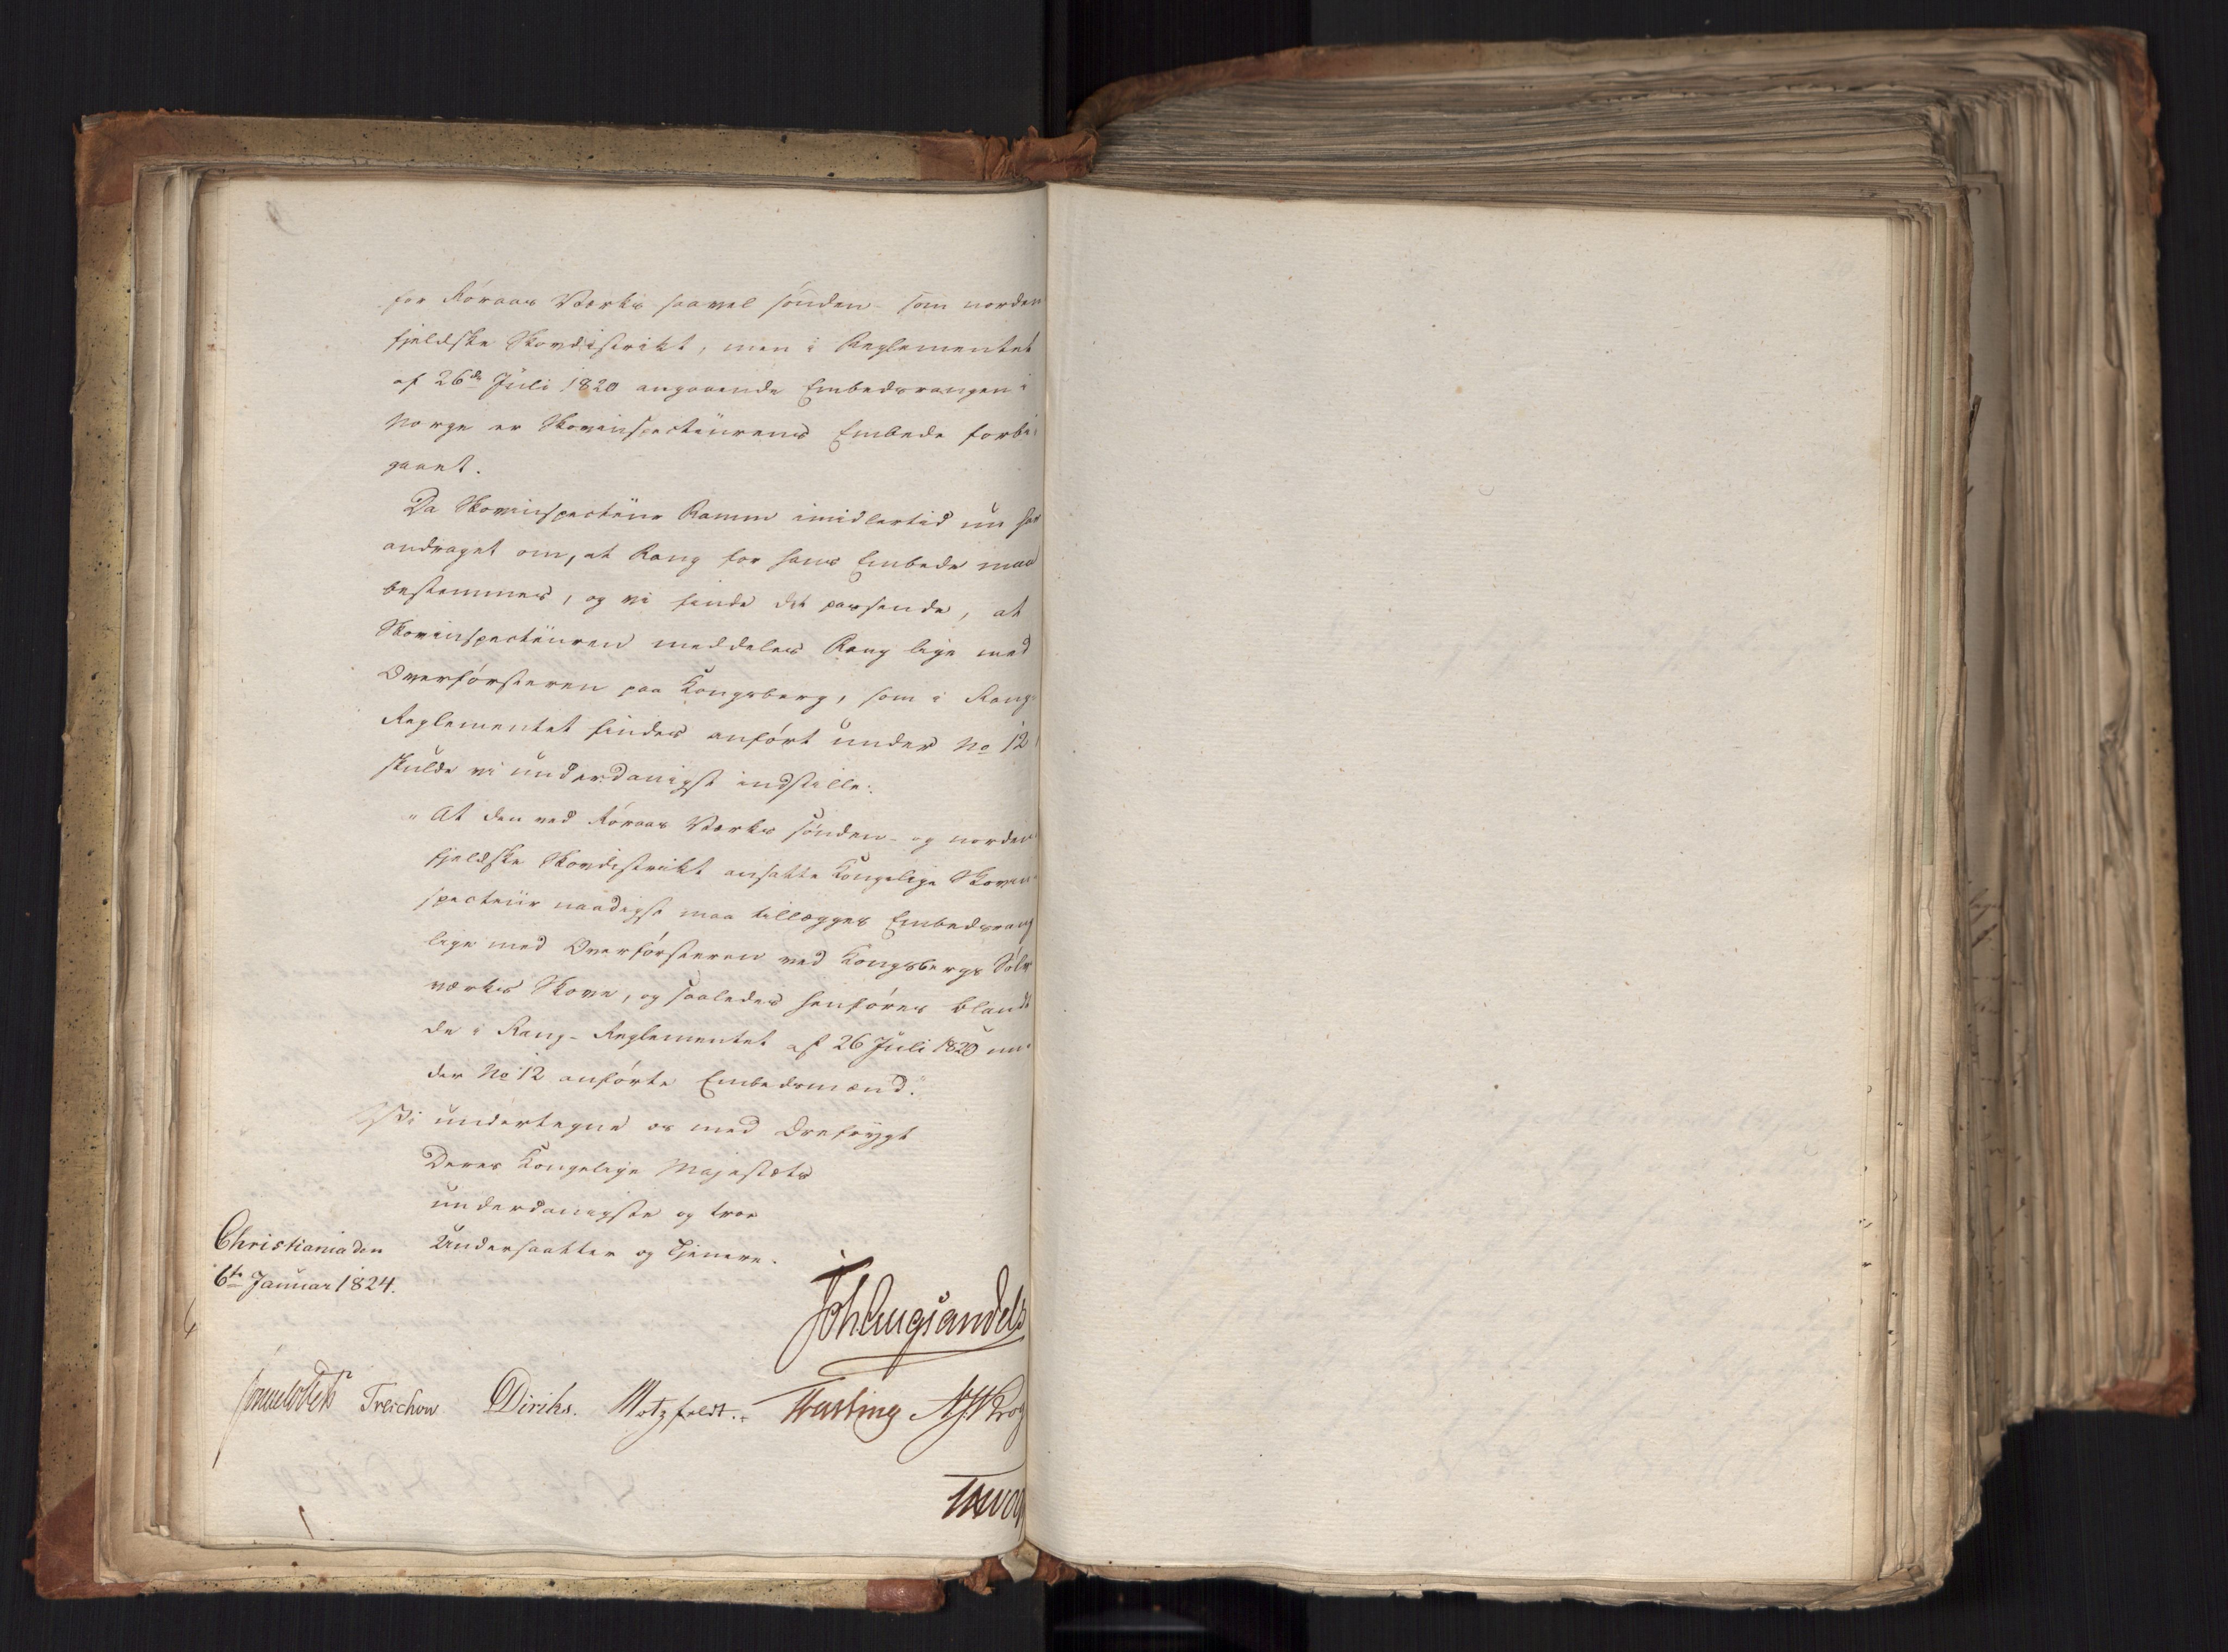 for Röraas Værks saavel sönden- som norden
fjeldske Skovdistrikt, men i Reglementet
af 26de Juli 1820 angaaende Embedsrangen i
Norge er Skovinspecteurens Embede forbi
gaaet.
Da Skovinspecteur Ramm imidlertid nu har
andraget om, at Rang for hans Embede maa
bestemmes, og vi finde det passende, at
Skovinspecteuren meddeles Rang lige med
Overförsteren paa Kongsberg, som i Rang-
Reglementet findes anfört under No 12
skulde vi underdanigst indstille:
"At den ved Röraas Værks sönden- og norden
fjeldske Skovdistrikt ansatte Kongelige Skovin
specteur naadigst maa tillægges Embedsrang
lige med Overförsteren ved Kongsbergs Sölv
værks Skove, og saaledes henföres blandt
de i Rang-Reglementet af 26 Juli 1820 un-
der No 12 anförte Embedsmænd."
Vi undertegne os med Ærefrygt
Deres Kongelige Majestæts
underdanigste og troe
Undersaatter og Tjenere.
Christiania den
6te Januar 1824.
Joh Aug Sandels
Sommerhielm Treschow Diriks. Motzfeldt. Fasting N J Krog